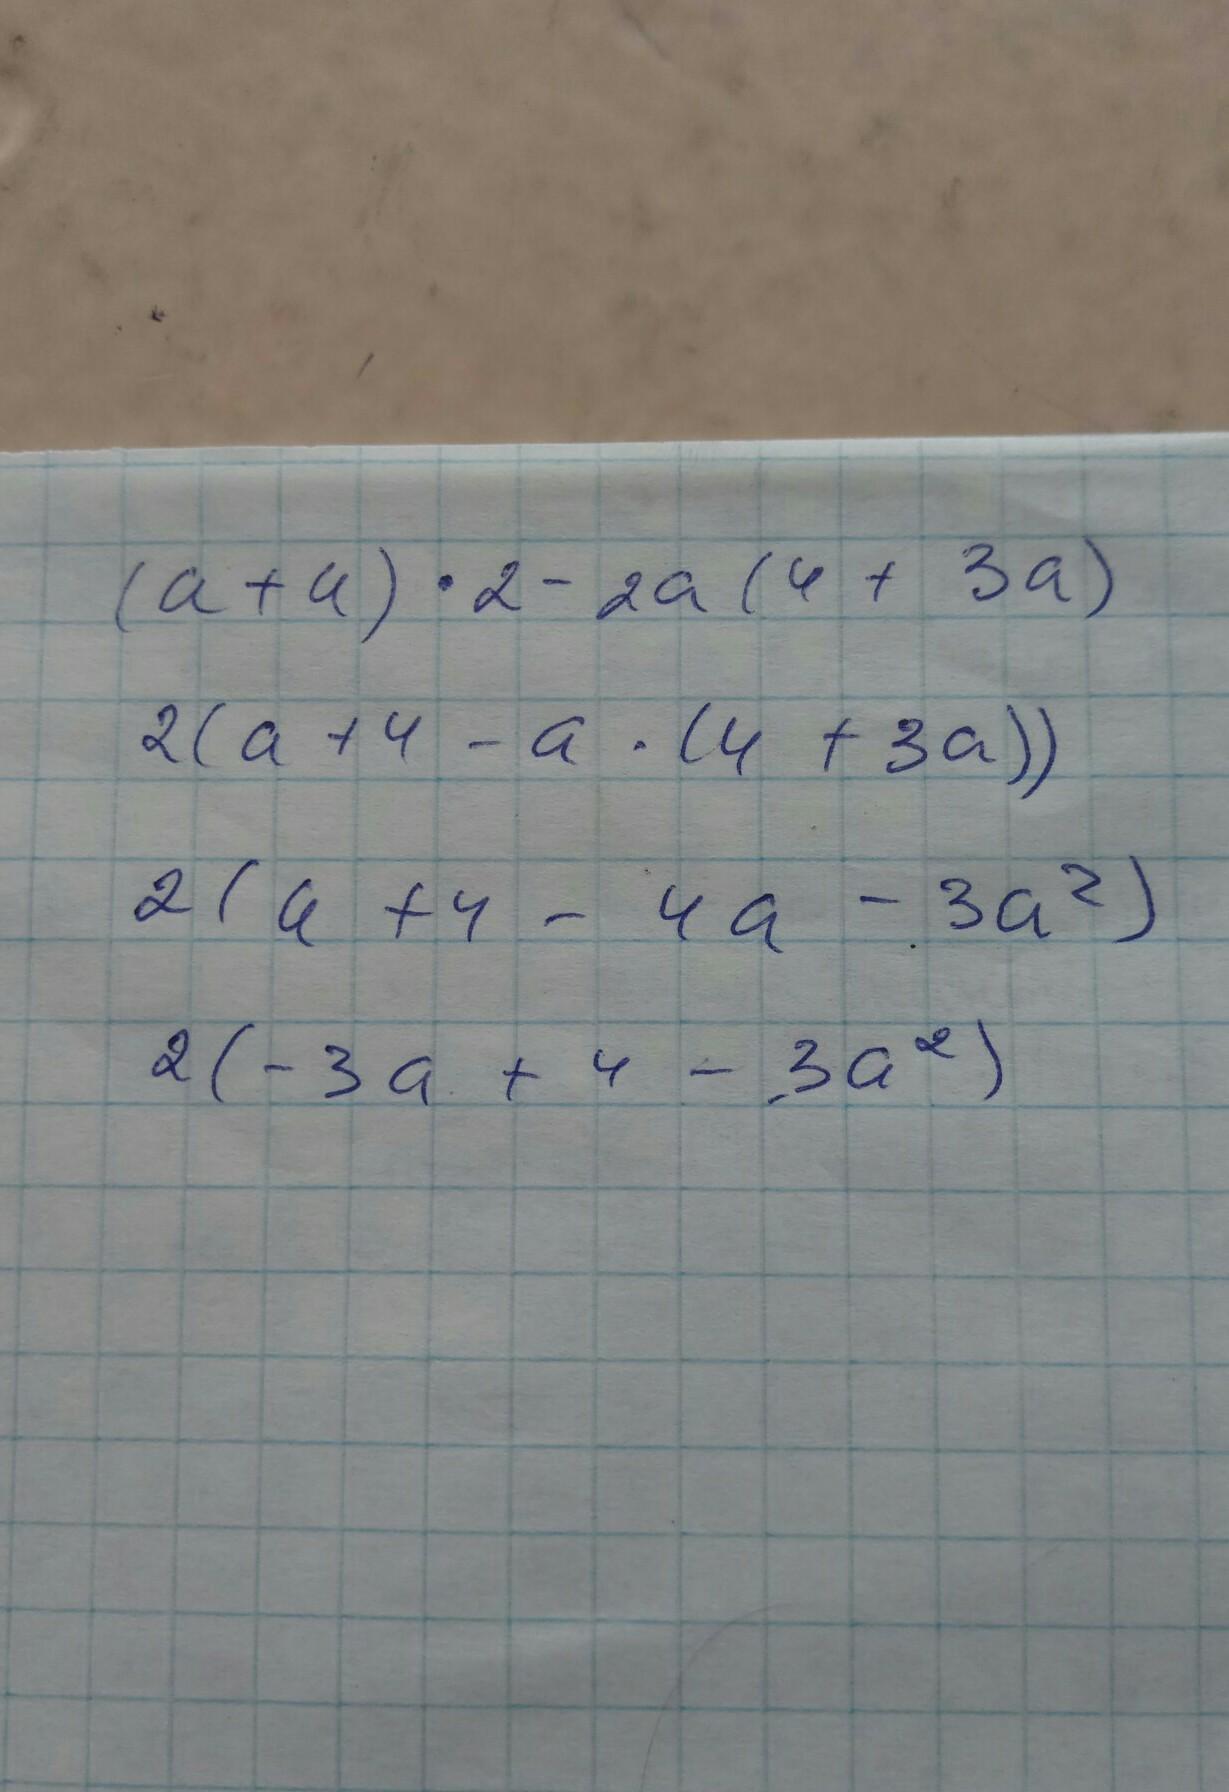 (a + 4) · 2 - 2a (4 + 3a)
2(a + 4 - a · (4 + 3a))
2(a + 4 - 4a - 3a²)
2(-3a + 4 - 3a²)